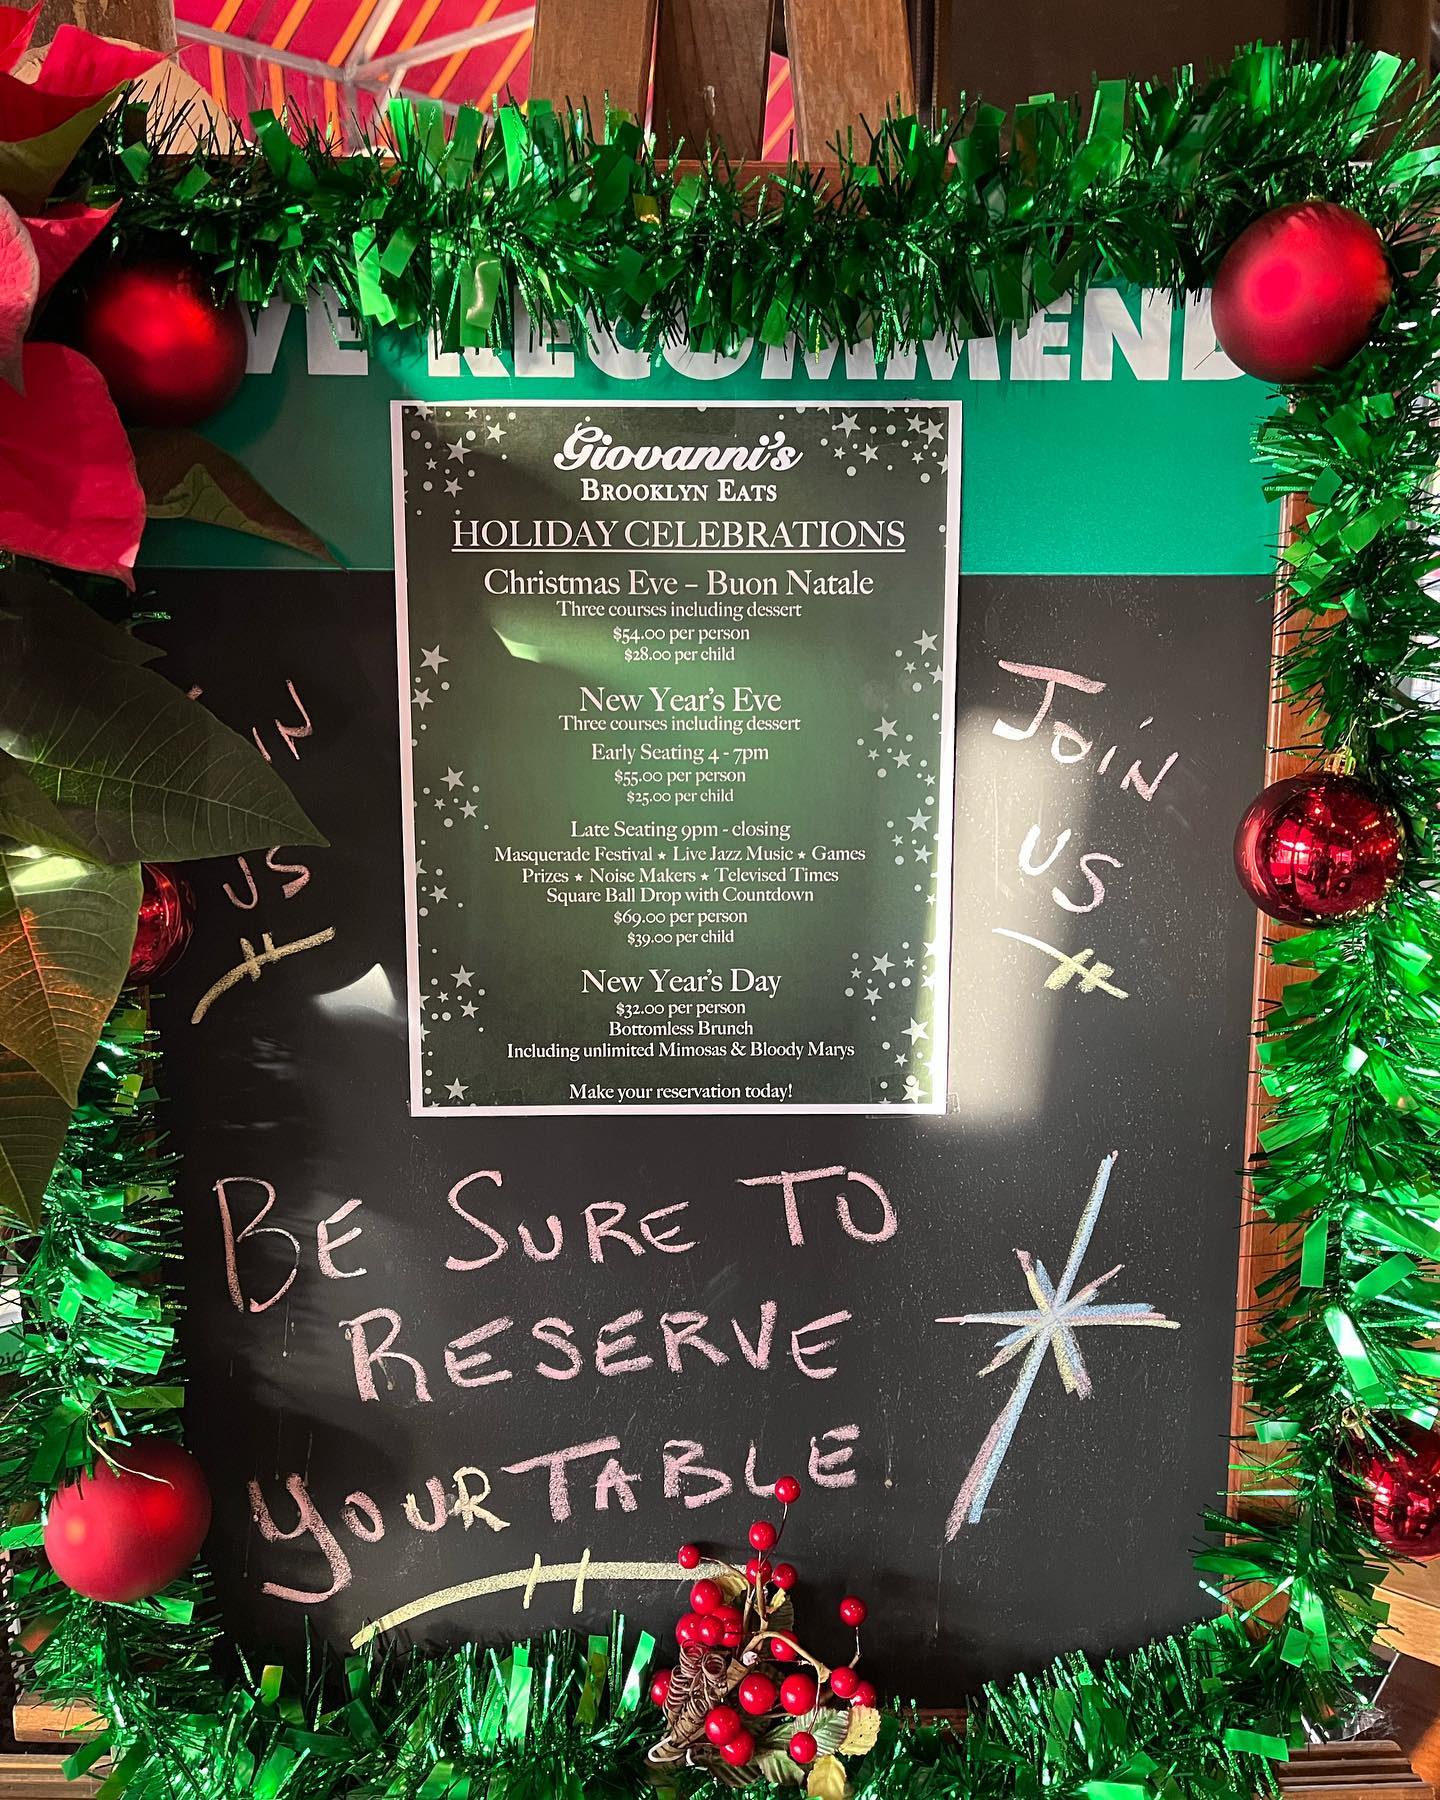 WE RECOMMEND
Giovanni's
BROOKLYN EATS
HOLIDAY CELEBRATIONS
Christmas Eve – Buon Natale
Three courses including dessert
$54.00 per person
$28.00 per child
New Year's Eve
Three courses including dessert
Early Seating 4 - 7pm
$55.00 per person
$25.00 per child
Late Seating 9pm - closing
Masquerade Festival ★ Live Jazz Music ★ Games
Prizes ★ Noise Makers ★ Televised Times
Square Ball Drop with Countdown
$69.00 per person
$39.00 per child
New Year's Day
$32.00 per person
Bottomless Brunch
Including unlimited Mimosas & Bloody Marys
Make your reservation today!
IN
US
JOIN
US
BE SURE TO
RESERVE
YOUR TABLE